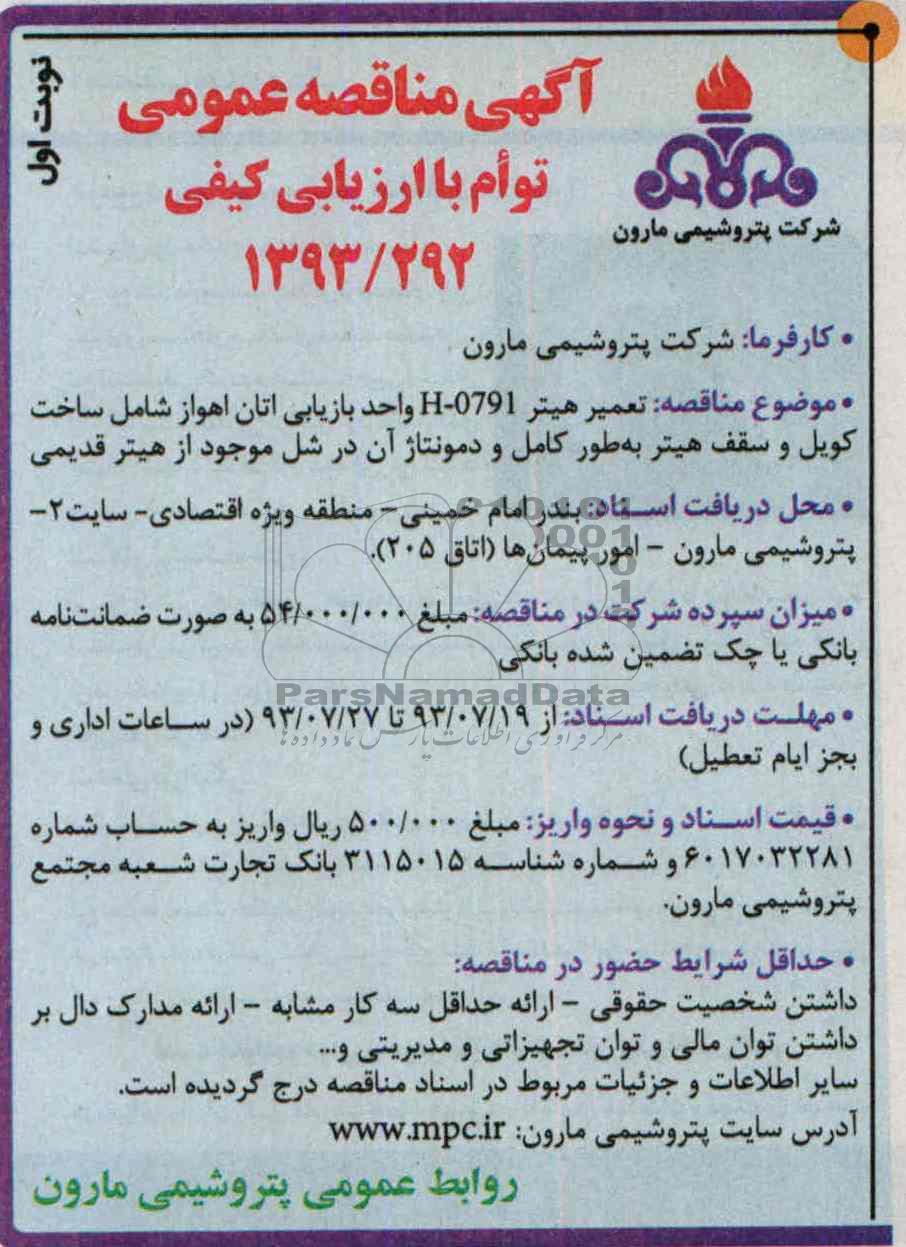 نوبت اول
آگهی مناقصه عمومی
توأم با ارزیابی کیفی
۱۳۹۳/۲۹۲
شرکت پتروشیمی مارون
• کارفرما: شرکت پتروشیمی مارون
• موضوع مناقصه: تعمیر هیتر H-0791 واحد بازیابی اتان اهواز شامل ساخت
کویل و سقف هیتر به‌طور کامل و دمونتاژ آن در شل موجود از هیتر قدیمی
• محل دریافت اسناد: بندر امام خمینی – منطقه ویژه اقتصادی- سایت۲–
پتروشیمی مارون – امور پیمان‌ها (اتاق ۲۰۵).
• میزان سپرده شرکت در مناقصه: مبلغ ۵۴/۰۰۰/۰۰۰ به صورت ضمانت‌نامه
بانکی یا چک تضمین شده بانکی
ParsNamadData
• مهلت دریافت اسناد: از ۹۳/۰۷/۱۹ تا ۹۳/۰۷/۲۷ (در ساعات اداری و
مرکز فرآوری اطلاعات پارس نماد داده ها
بجز ایام تعطیل)
• قیمت اسناد و نحوه واریز: مبلغ ۵۰۰/۰۰۰ ریال واریز به حساب شماره
۶۰۱۷۰۳۲۲۸۱ و شماره شناسه ۳۱۱۵۰۱۵ بانک تجارت شعبه مجتمع
پتروشیمی مارون.
• حداقل شرایط حضور در مناقصه:
داشتن شخصیت حقوقی – ارائه حداقل سه کار مشابه – ارائه مدارک دال بر
داشتن توان مالی و توان تجهیزاتی و مدیریتی و...
سایر اطلاعات و جزئیات مربوط در اسناد مناقصه درج گردیده است.
آدرس سایت پتروشیمی مارون: www.mpc.ir
روابط عمومی پتروشیمی مارون